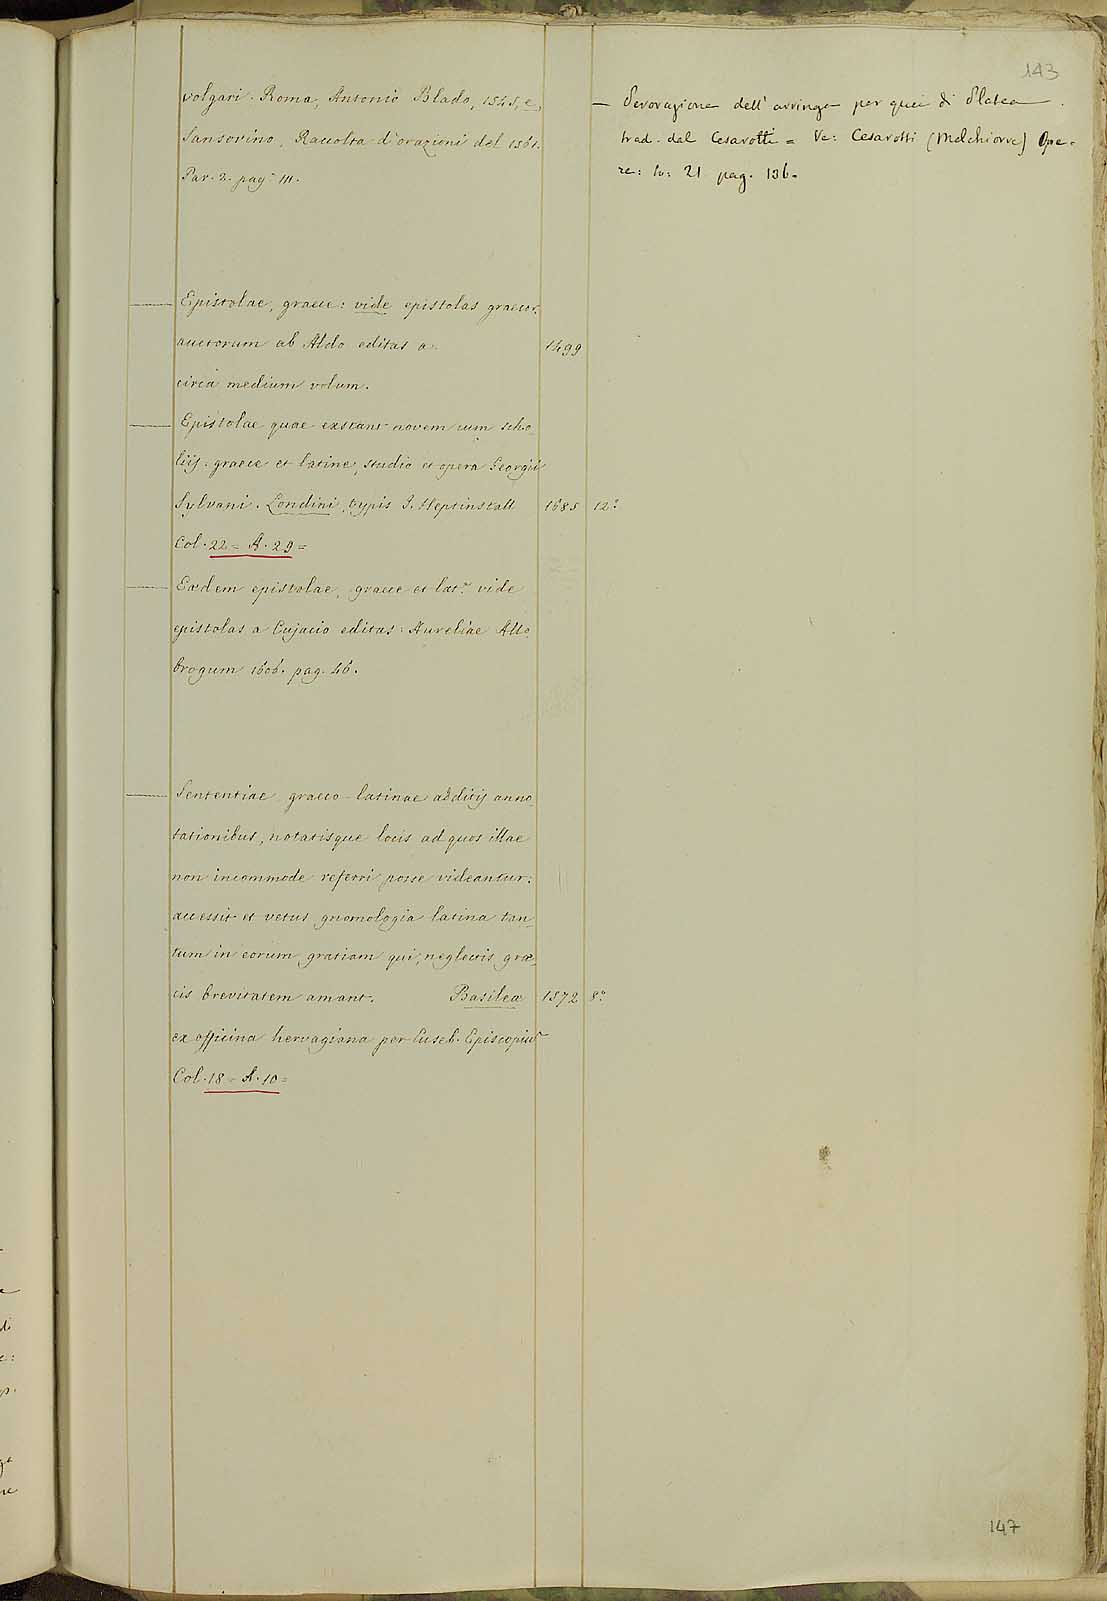 143
volgari. Roma, Antonio Blado, 1545, e,
Sansovino, Raccolta d'orazioni del 1561.
Par. 2. pag. 111.
— Perorazione dell'arringa per quei di Platea.
trad. dal Cesarotti = Ve: Cesarotti (Melchiorre) Ope-
re: to: 21 pag. 136.
— Epistolae, graece: vide epistolas graecor.
auctorum ab Aldo editas a. 1499
circa medium volum.
— Epistolae quae exstant novem cum scho-
liis. graece et latine, studio et opera Georgii
Sylvani. Londini, typis J. Heptinstall 1685 12°
Col. 22 = A. 29 =
— Eædem epistolae, graece et lat.e vide
epistolas a Cujacio editas: Aureliae Allo-
brogum 1606. pag. 46.
— Sententiae graeco-latinae additis anno-
tationibus, notatisque locis ad quos illae
non incommode referri posse videantur:
accessit et vetus gnomologia latina tan-
tum in eorum gratiam qui, neglectis græ-
cis brevitatem amant. Basileæ 1572 8°
ex officina hervagiana per Euseb. Episcopiū
Col. 18 = A. 10 =
147